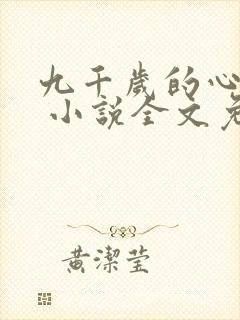 九千歲的心
小說全文免
黃潔瑩